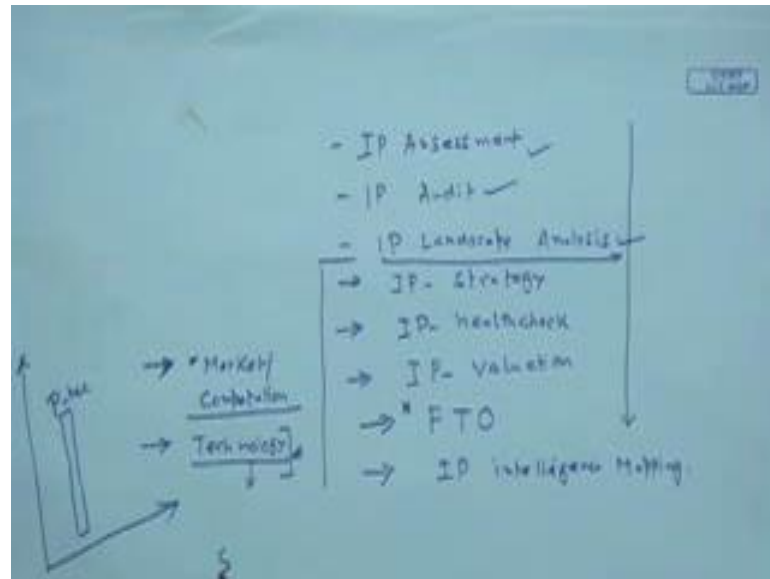 - IP Assessment ✓
- IP Audit ✓
- IP Landscape Analysis ✓
→ IP- Strategy
→ IP- healthcheck
→ IP- Valuation
→ * FTO
→ IP intelligence Mapping.
→ * Market/
Competation
→ Technology